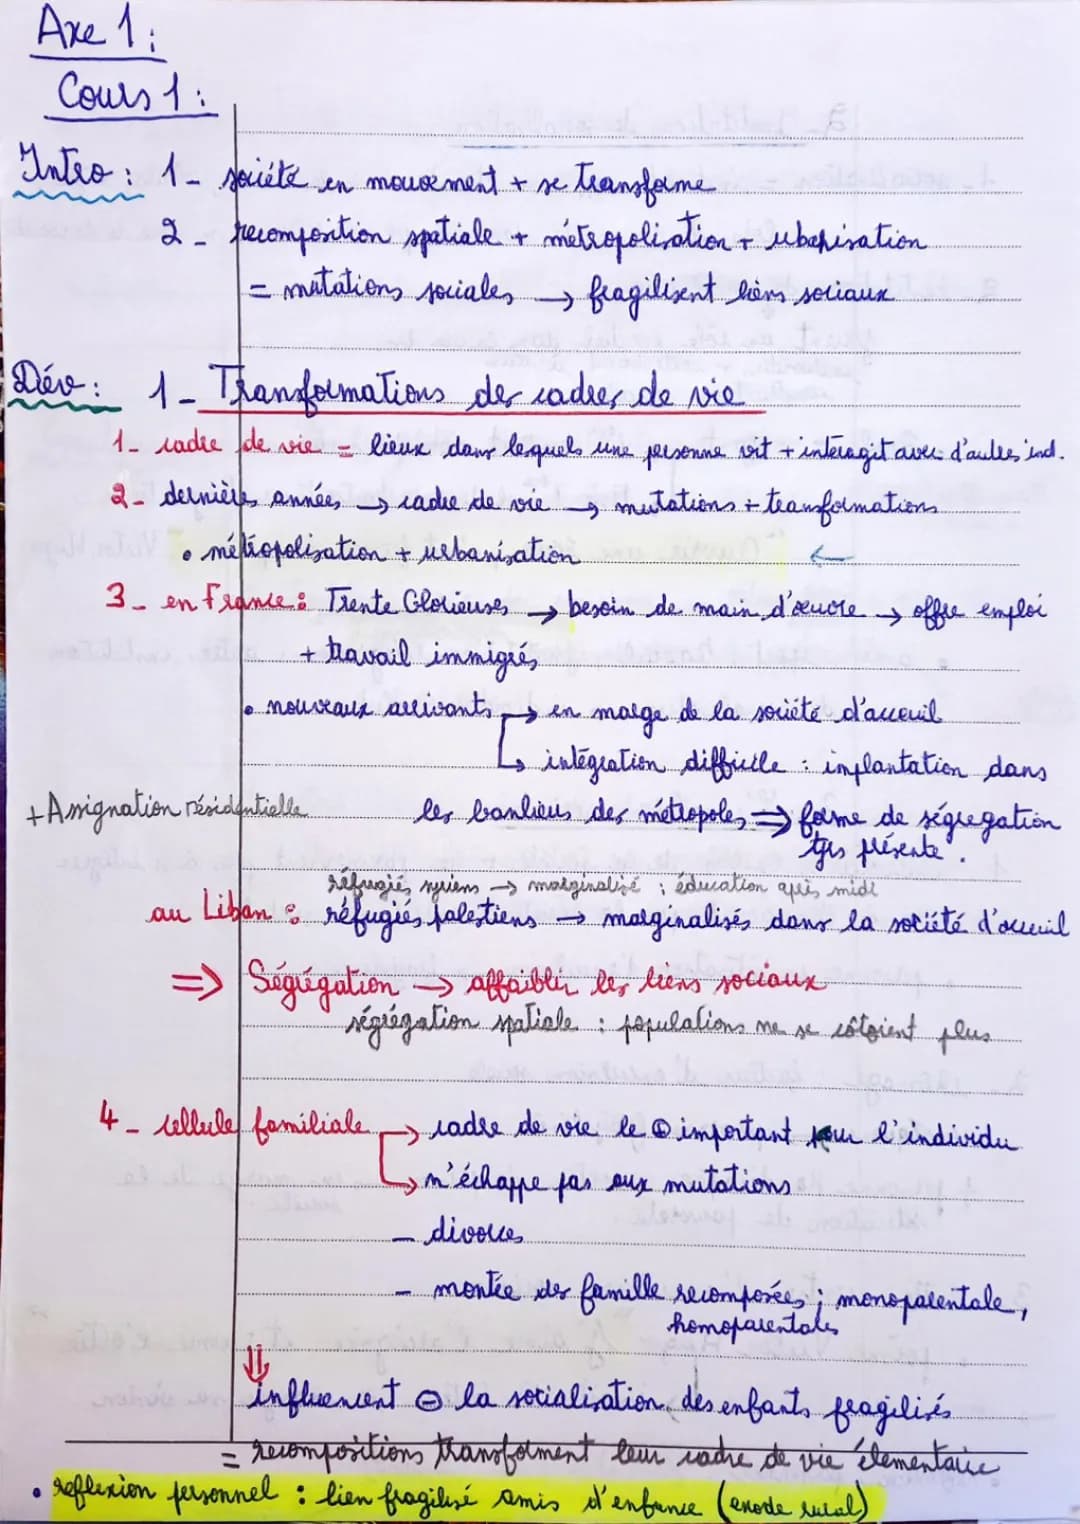 Axe 1 :
Cours 1 :
Intro : 1_ société en mouvement + se transforme
2_ recomposition spatiale + métropolisation + urbanisation
= mutations sociales → fragilisent liens sociaux
Dév : 1_ Transformations des cadres de vie
1_ cadre de vie = lieux dans lequels une personne vit + interagit avec d'autres ind.
2_ dernières années → cadre de vie → mutations + transformations
• métropolisation + urbanisation ←
3_ en France : Trente Glorieuses → besoin de main d'œuvre → offre emploi
+ travail immigrés
• nouveaux arrivants → en marge de la société d'acceuil
↳ intégration difficile : implantation dans
+ Assignation résidentielle les banlieus des métropoles ⇒ forme de ségregation
tjrs présente.
réfugiés syriens → marginalisé ; éducation après midi
au Liban : réfugiés palestiens → marginalisés dans la société d'acceuil
⇒ Ségrégation → affaiblir les liens sociaux
ségrégation spatiale : populations ne se côtoient plus
4_ cellule familiale → cadre de vie le ⊕ important pour l'individu
↳ n'échappe pas aux mutations
– divorces
– montée des famille recomposées ; monoparentale,
homoparentales
⇓
influencent ⊖ la socialisation des enfants fragilisés
= recompositions transforment leur cadre de vie élementaire
• reflexion personnel : lien fragilisé amis d'enfance (exode rural)